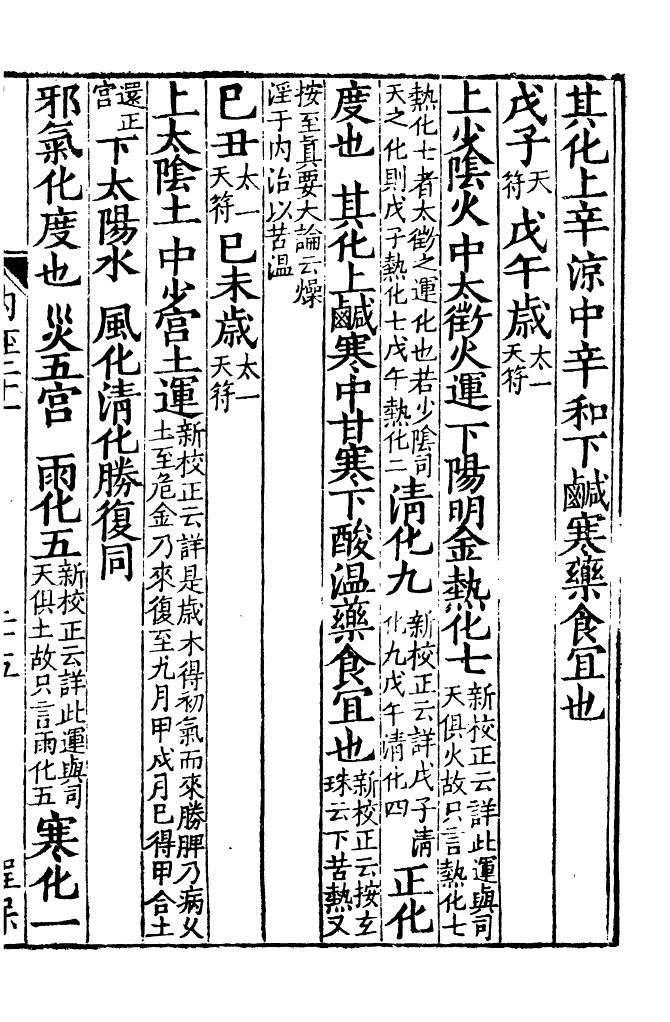 其化上辛涼中辛和下鹹寒藥食冝也
戊子天符戊午歲太一天符
上少陰火中太徵火運下陽明金熱化七新校正云詳此運與司天俱火故只言熱化七
熱化七者太徵之運化也若少陰司天之化則戊子熱化七戊午熱化二清化九新校正云詳戊子清化九戊午清化四正化
度也　其化上鹹寒中甘寒下酸温藥食冝也新校正云按玄珠云下苦熱又
按至真要大論云燥淫于内治以苦温
巳丑太一天符巳未歲太一天符
上太陰土中少宫土運新校正云詳是歲木得初氣而來勝脾乃病乆土至危金乃來復至九月甲戌月巳得甲合土
還正宫下太陽水　風化清化勝復同
邪氣化度也　災五宫　雨化五新校正云詳此運與司天俱土故只言雨化五寒化一